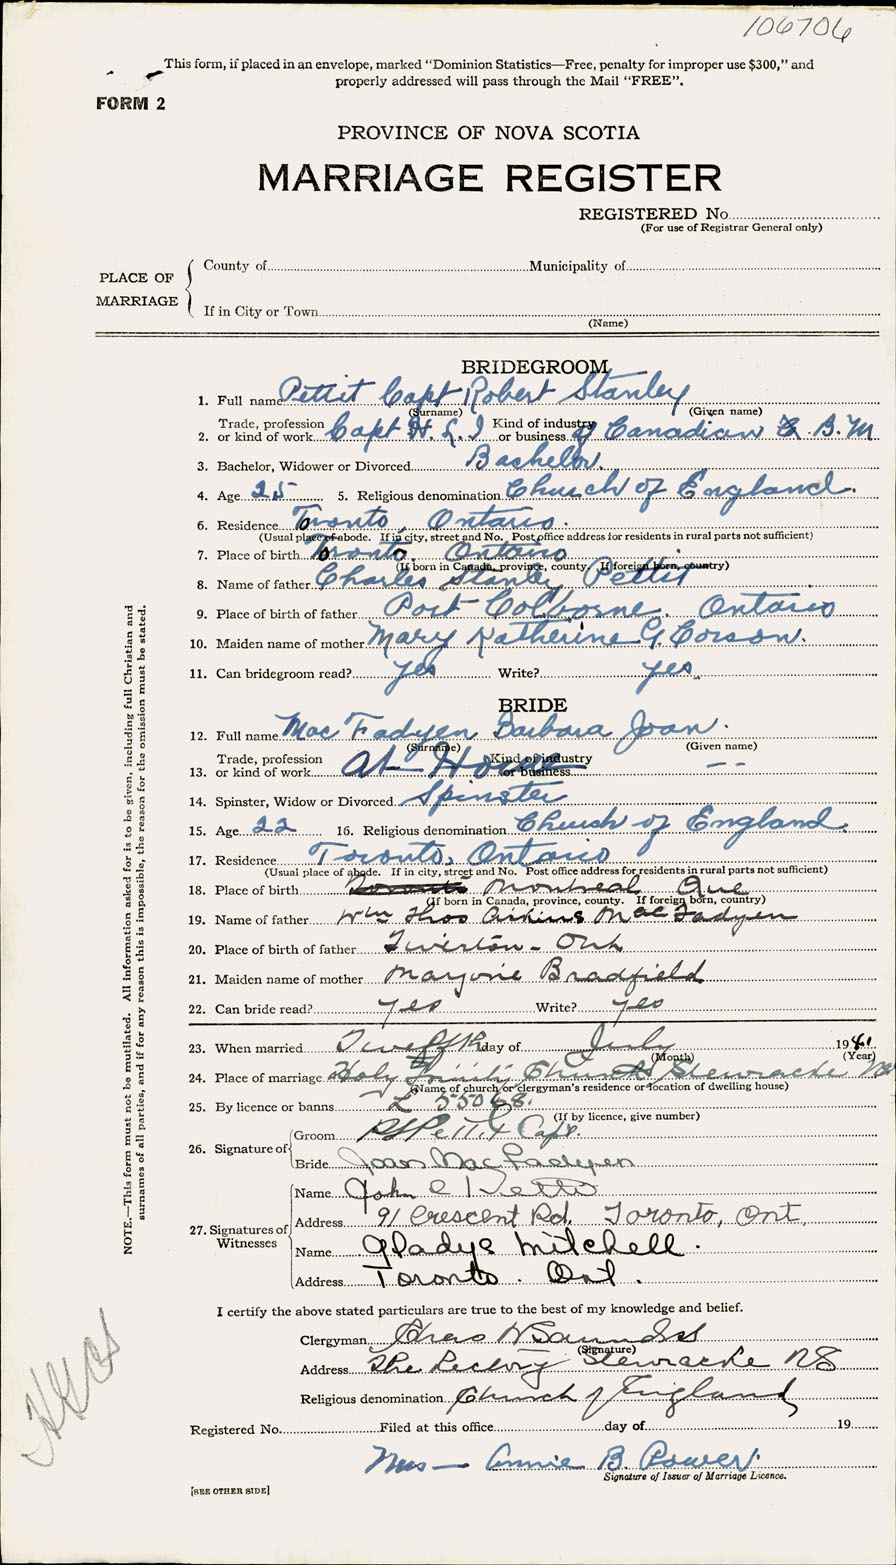 106706
This form, if placed in an envelope, marked "Dominion Statistics—Free, penalty for improper use $300," and
properly addressed will pass through the Mail "FREE".
FORM 2
PROVINCE OF NOVA SCOTIA
MARRIAGE REGISTER
REGISTERED No.
(For use of Registrar General only)
PLACE OF MARRIAGE
County of Municipality of
If in City or Town
(Name)
BRIDEGROOM
1. Full name Pettit Capt Robert Stanley
(Surname) (Given name)
2. Trade, profession or kind of work Capt H. L. I Kind of industry or business of Canadian B. M
3. Bachelor, Widower or Divorced Bachelor.
4. Age 25 5. Religious denomination Church of England.
6. Residence Toronto, Ontario.
(Usual place of abode. If in city, street and No. Post office address for residents in rural parts not sufficient)
7. Place of birth Toronto, Ontario
(If born in Canada, province, county. If foreign born, country)
8. Name of father Charles Stanley Pettit
9. Place of birth of father Port Colborne, Ontario
10. Maiden name of mother Mary Katherine G. Corson.
11. Can bridegroom read? yes Write? yes.
BRIDE
12. Full name Mac Fadyen Barbara Joan.
(Surname) (Given name)
13. Trade, profession or kind of work At Home Kind of industry or business – –
14. Spinster, Widow or Divorced Spinster
15. Age 22 16. Religious denomination Church of England.
17. Residence Toronto, Ontario
(Usual place of abode. If in city, street and No. Post office address for residents in rural parts not sufficient)
18. Place of birth Toronto Montreal Que
(If born in Canada, province, county. If foreign born, country)
19. Name of father Wm Thos Aikins MacFadyen
20. Place of birth of father Tiverton – Ont
21. Maiden name of mother Marjorie Bradfield
22. Can bride read? yes Write? yes
23. When married Twelfth day of July 1941
(Month) (Year)
24. Place of marriage Holy Trinity Church Stewiacke NS
(Name of church or clergyman's residence or location of dwelling house)
25. By licence or banns L 55068.
(If by licence, give number)
26. Signature of
Groom RSPettit Capt.
Bride Joan MacFadyen
27. Signatures of Witnesses
Name John C
Address 91 Crescent Rd. Toronto, Ont.
Name Gladys Mitchell.
Address Toronto. Ont.
I certify the above stated particulars are true to the best of my knowledge and belief.
Clergyman Chas W Saunders
(Signature)
Address The Rectory Stewiacke NS
Religious denomination Church of England
Registered No. Filed at this office day of 19
Mrs — Annie B. Power.
Signature of Issuer of Marriage Licence.
[SEE OTHER SIDE]
NOTE.—This form must not be mutilated. All information asked for is to be given, including full Christian and
surnames of all parties, and if for any reason this is impossible, the reason for the omission must be stated.